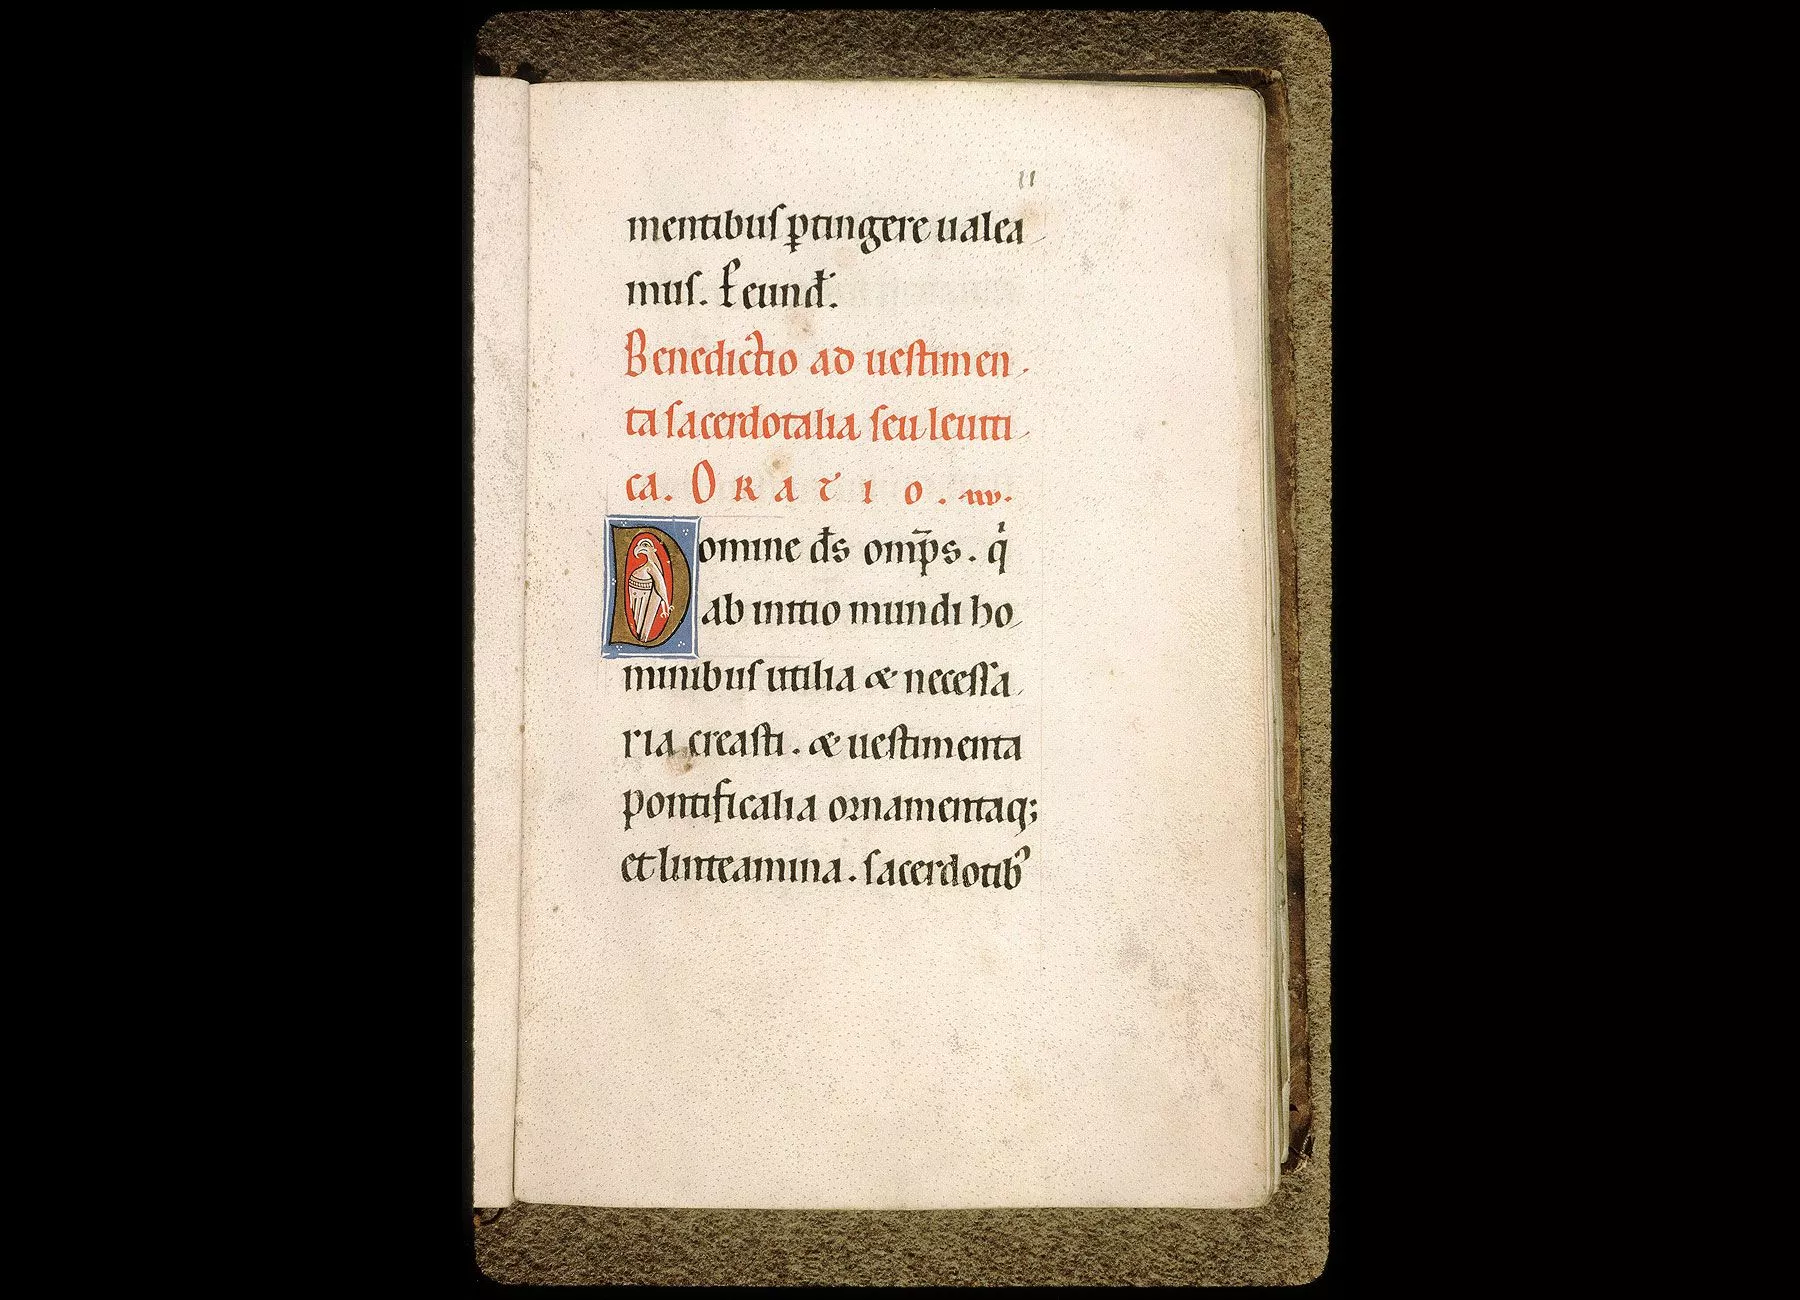 11
mentibuſ ꝑtingere ualea
muſ. Ꝑ eund̄.
Benedictio ad ueſtimen
ta ſacerdotalia ſeu leuiti
ca. ORATIO.
Domine d̄s om̄ps. qͥ
ab initio mundi ho
minibuſ utilia & neceſſa
ria creaſti. & ueſtimenta
pontificalia ornamentaq;
et linteamina. ſacerdotibꝰ